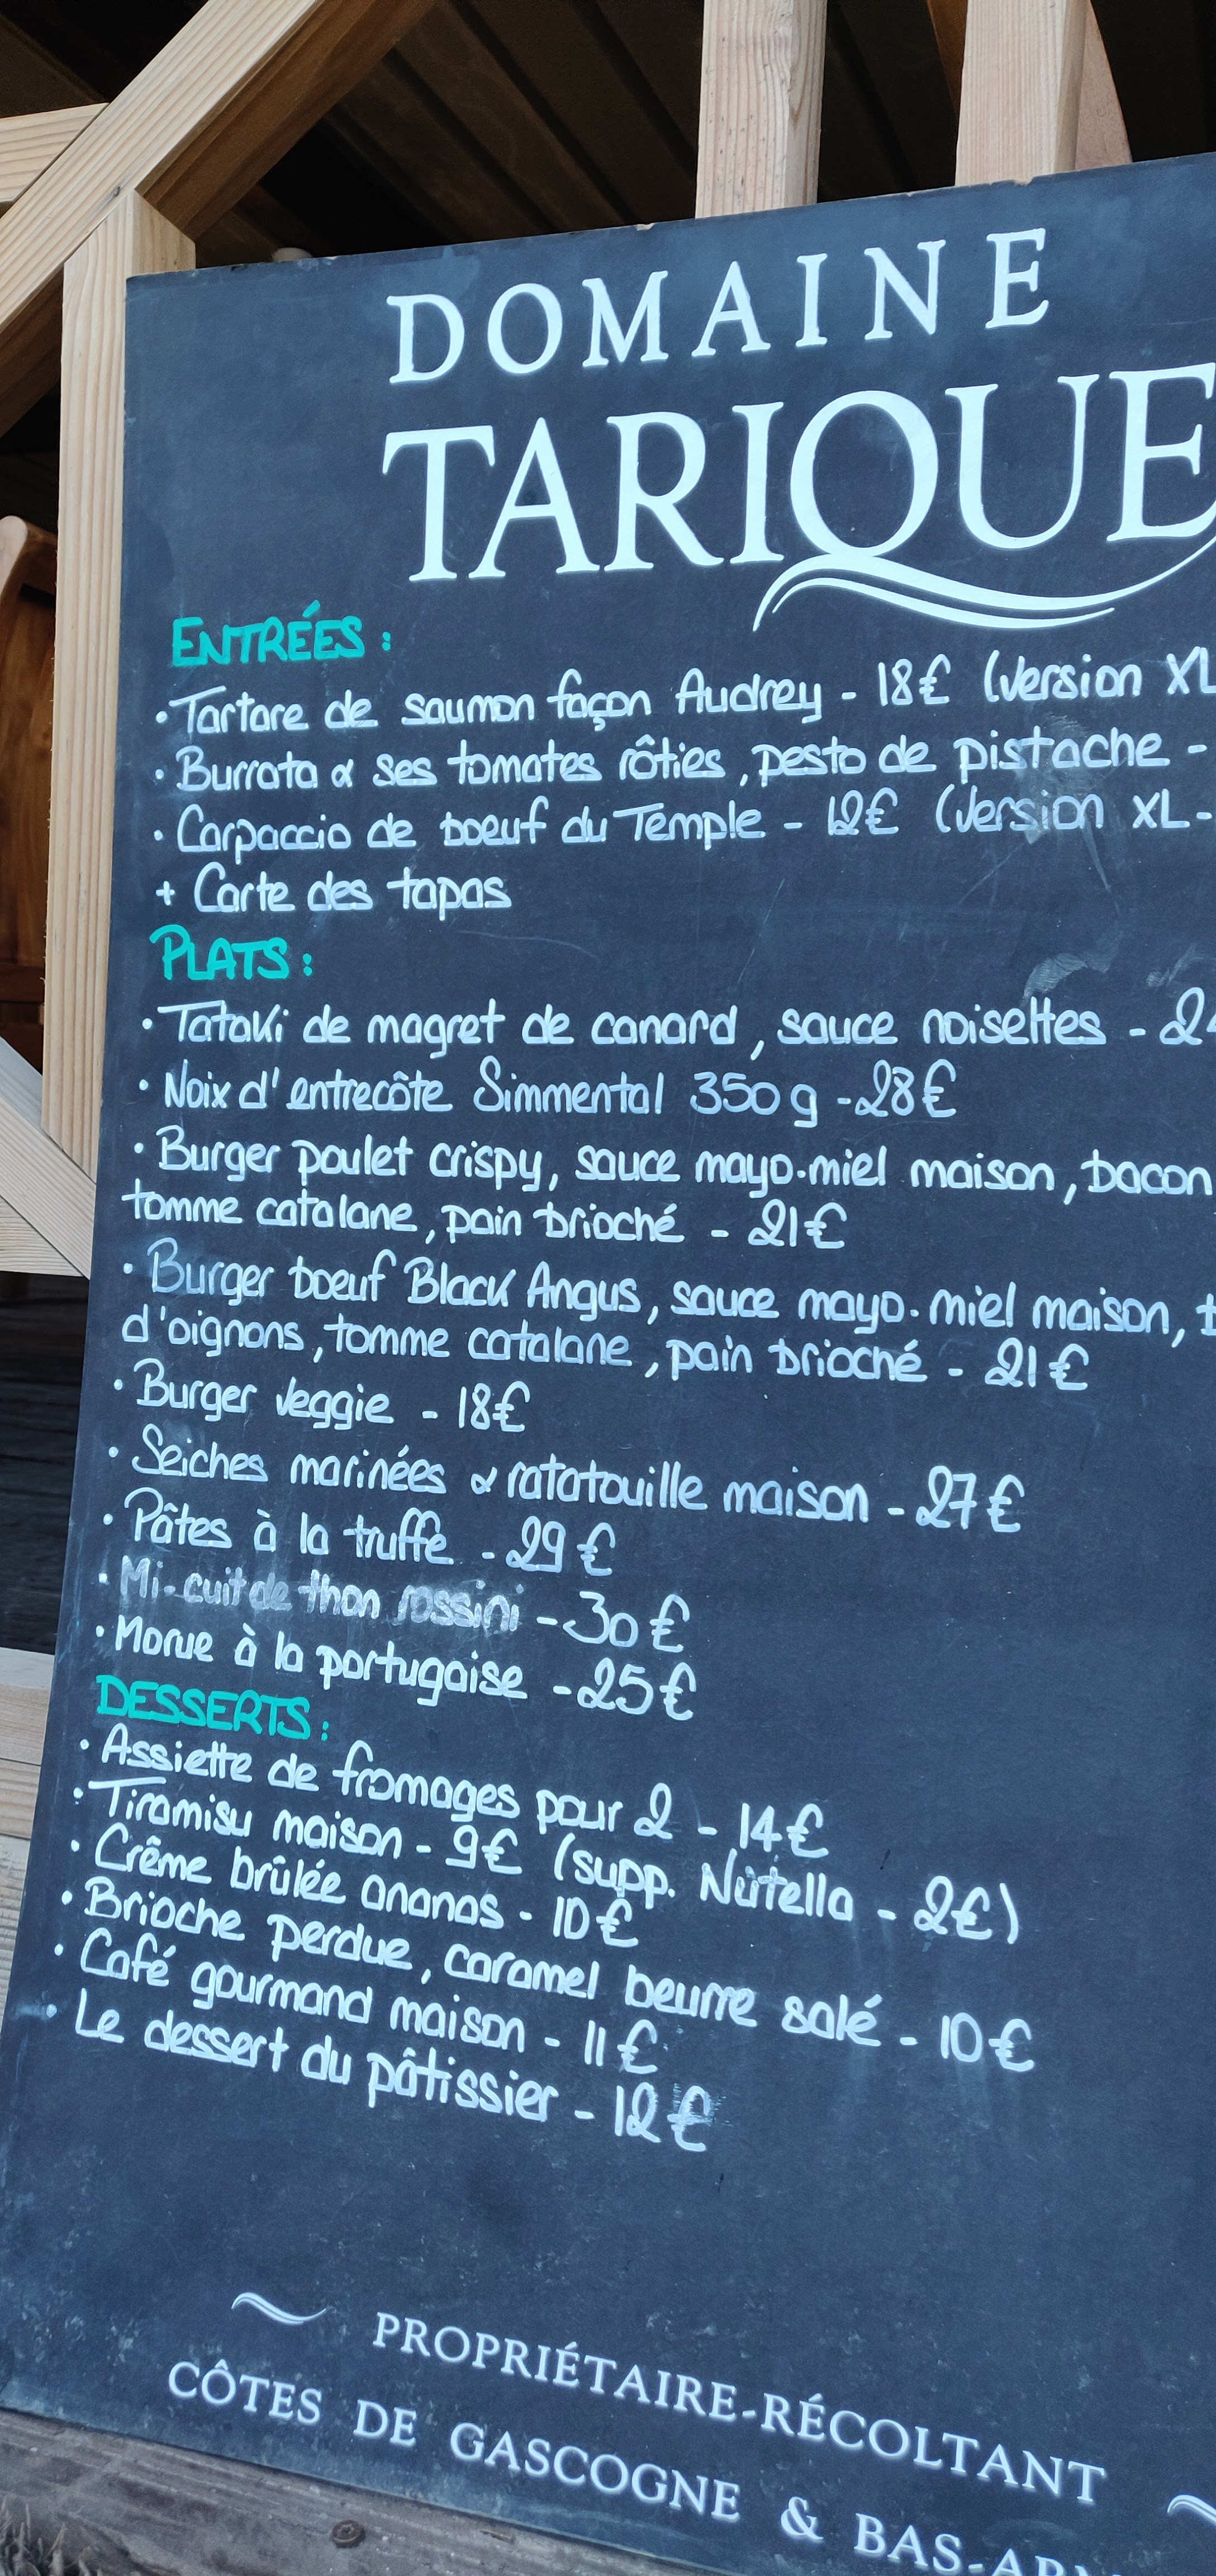 DOMAINE
TARIQUE
ENTRÉES :
• Tartare de saumon façon Audrey - 18€ (Version XL
• Burrata & ses tomates rôties, pesto de pistache -
• Carpaccio de boeuf du Temple - 12€ (Version XL -
+ Carte des tapas
PLATS :
• Tataki de magret de canard, sauce noisettes - 24
• Noix d'entrecôte Simmental 350g - 28€
• Burger poulet crispy, sauce mayo-miel maison, bacon
tomme catalane, pain brioché - 21€
• Burger boeuf Black Angus, sauce mayo-miel maison,
d'oignons, tomme catalane, pain brioché - 21€
• Burger veggie - 18€
• Seiches marinées & ratatouille maison - 27€
• Pâtes à la truffe - 29€
• Mi-cuit de thon rossini - 30€
• Morue à la portugaise - 25€
DESSERTS :
• Assiette de fromages pour 2 - 14€
• Tiramisu maison - 9€ (supp. Nutella - 2€)
• Crême brûlée ananas - 10€
• Brioche perdue, caramel beurre salé - 10€
• Café gourmand maison - 11€
• Le dessert du pâtissier - 12€
PROPRIÉTAIRE-RÉCOLTANT
CÔTES DE GASCOGNE & BAS-